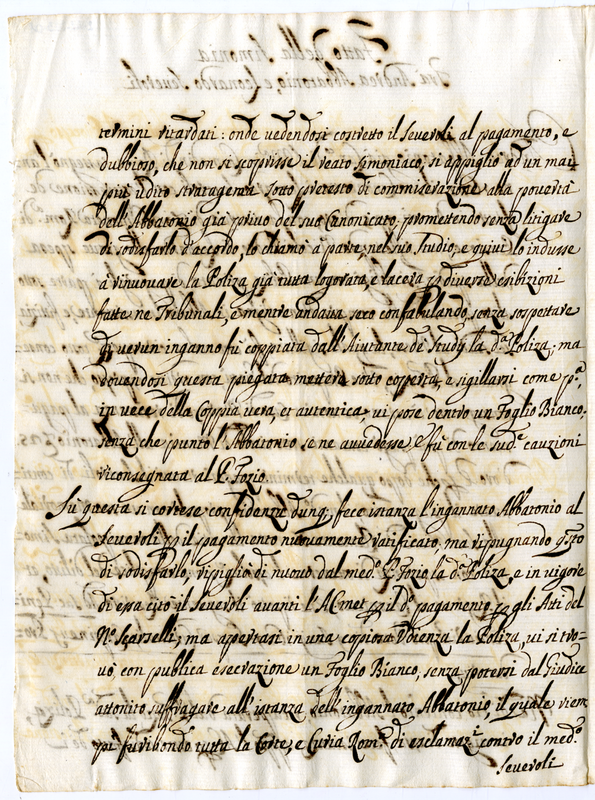 termini ritardati: onde vedendosi costretto il Severoli al pagamento, e
dubbioso, che non si scoprisse il reato simoniaco, si appigliò ad un mai
più udito stratagema sotto pretesto di commiserazione alla povertà
dell'Abbatonio già privo del suo Canonicato, promettendo senza litigare
di sodisfarlo d'accordo; lo chiamò à parte nel suo Studio, e quivi lo indusse
à rinuovare la Poliza già tutta logorata, e lacera p diverse esibizioni
fatte ne Tribunali, e mentre andava seco confabulando, senza sospettare
di verun inganno fù coppiata dall'Aiutante de Study la d.ª Poliza; ma
dovendosi questa piegata mettere sotto coperta, e sigillarsi come p.ª,
in vece della Coppia vera, et autentica, vi pose dentro un Foglio Bianco,
senza che punto l'Abbatonio se ne avvedesse, e fù con le sud.e cauzioni
riconsegnata al P. Fozio.
Sù questa si cortese confidenza dunq;, fece istanza l'ingannato Abbatonio al
Severoli p il pagamento nuovamente ratificato, ma ripugnando q.sto
di sodisfarlo, ripigliò di nuovo dal med.º P. Fozio la d.ª Poliza, e in vigore
di essa citò il Severoli avanti l'AC met p il d.º pagamento p gli Atti del
N.º Scarselli; ma apertasi in una copiosa Udienza la Poliza, vi si tro-
vò con publica esecrazione un Foglio Bianco, senza potersi dal Giudice
attonito suffragare all'istanza dell'ingannato Abbatonio, il quale riem
pì furibondo tutta la Corte, e Curia Rom.ª di esclamaz.i contro il med.º
Severoli